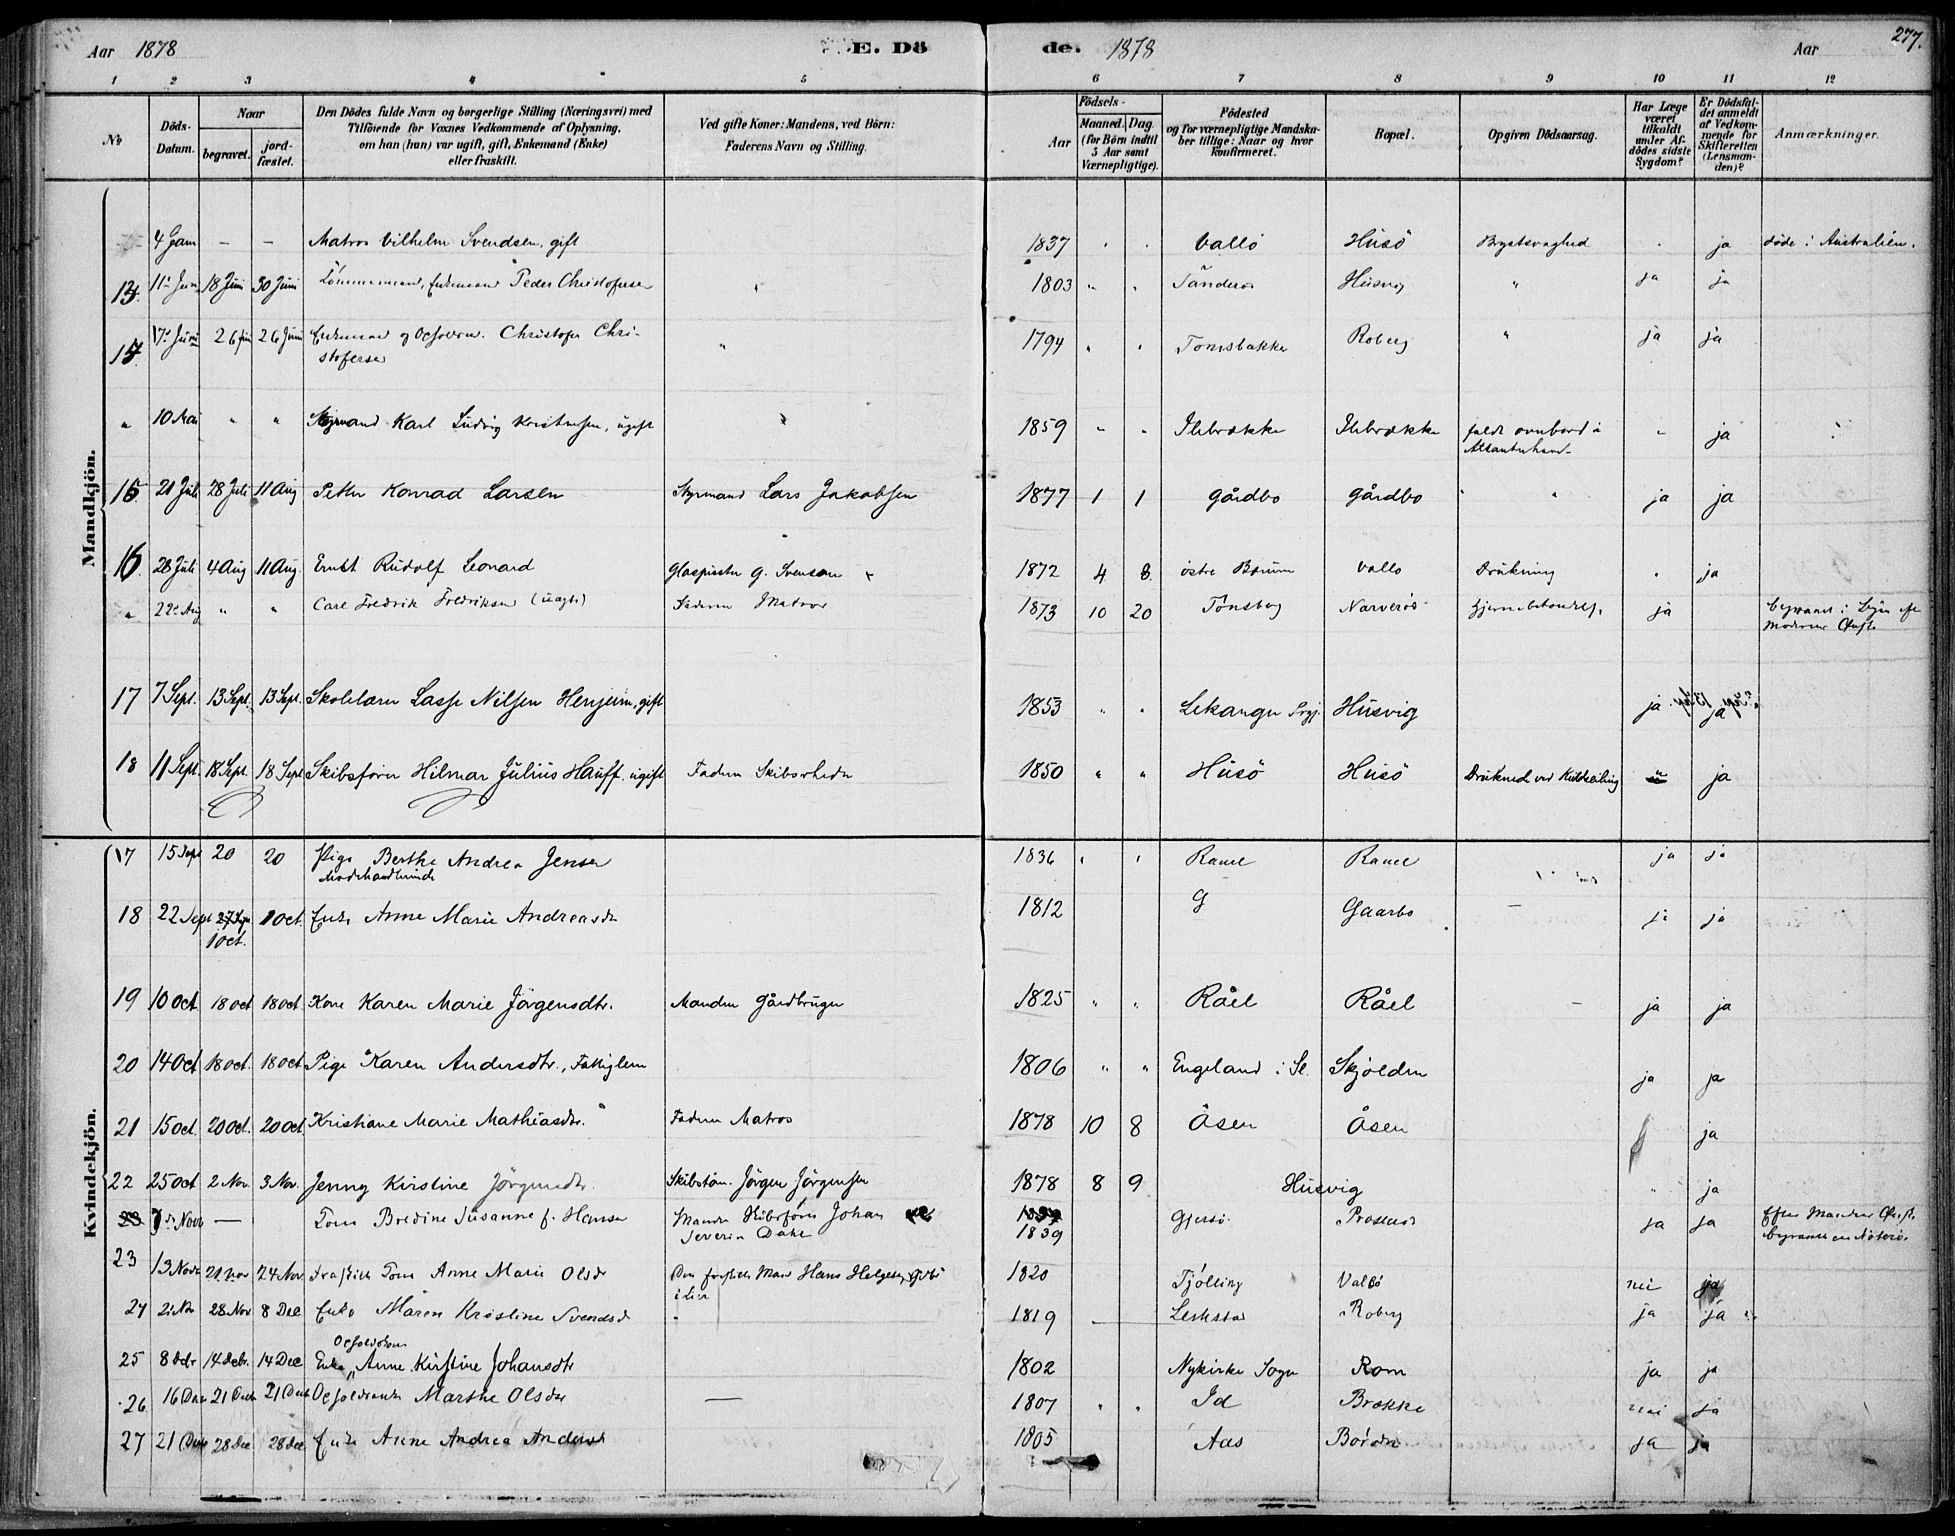 Aar 1878 E. Dö de. 1878 Aar 277.
1 2 3 4 5 6 7 8 9 10 11 12
No
Döds-Datum.
Naar
begravet. jord-fæstet.
Den Dödes fulde Navn og borgerlige Stilling (Næringsvei) med
Tilföiende for Voxnes Vedkommende af Oplysning,
om han (hun) var ugift, gift, Enkemand (Enke)
eller fraskilt.
Ved gifte Koner: Mandens, ved Börn:
Faderens Navn og Stilling.
Födsels-
Aar Maaned. Dag.
(for Börn indtil
5 Aar samt
Værnepligtige).
Födested
og for værnepligtige Mandska-
ber tillige: Naar og hvor
konfirmeret.
Bopæl.
Opgiven Dödsaarsag.
Har Læge
været
tilkaldt
under Af-
dödes sidste
Sygdom?
Er Dödsfal-
det anmeldt
af Vedkom-
mende for
Skifteretten
(Lensman-
den)?
Anmærkninger.
Mandkjön.
4 Jan — — Matros Vilhelm Svendsen, gift 1837 Vallö Husö Brystsvaghed ja döde i Australien.
11 Juni 18 Juni 30 Juni Enkemand Peder Christofersen 1803 " " Husvig " ja ja
17 Juni 26 Jun 26 Juni Enkemand og Christofer Chri-
stofersen " 1794 " " Tomsbakke Roberg " ja ja
" 10 Mai " " Styrmand Karl Ludvig Kristensen, ugift 1859 " " Ilebrække Ilebrække faldt overbord i
Atlanterhavet ja
15 21 Juli 28 Juli 11 Aug Petter Konrad Larsen Styrmand Lars Jakobsen 1877 1 1 Gårdbo Gårdbo " ja ja
16 28 Juli 4 Aug 11 Aug. Ernst Rudolf Leonard Glaspuster G. Svenson 1872 4 8 östre Bærum Vallö Drukning ja
" 22 Aug " " Carl Fredrik Fredriksen (uægte) Faderen Matros 1873 10 20 Tönsberg Narverö ja
17 7 Sept. 13 Sept. 13 Sept. Skolelærer Lasse Nilsen Henjum, gift 1853 " " Lekanger Prgj. Husvig ja. ja
18 11 Sept. 18 Sept. 18 Sept Skibsförer Hilmar Julius Hauff. ugift Faderen Skibsrheder 1850 " " Husö Husö Druknet ved Kuldseiling " ja
Kvindekjön.
17 15 Sept 20 20 Pige Berthe Andrea Jensen
Modehandlerinde 1836 " " Rauel Rauel ja ja
18 22 Sept 1 Oct. 1 Oct. Enke Anne Marie Andreasdr 1812 G Gaarbo — ja ja
19 10 Oct 18 Oct 18 Oct. Kone Karen Marie Jörgensdtr. Manden Gårdbruger 1825 " " Råel Råel — ja ja
20 14 Oct 18 Oct. 18 Oct Pige Karen Andersdtr., Fattiglem 1806 " " Engeland i Sl. Skjölden ja ja
21 15 Oct. 20 Oct. 20 Oct. Kristiane Marie Mathiasdtr. Faderen Matros 1878 10 8 Åsen Åsen ja
22 25 Oct 2 Nov. 3 Nov. Jenny Kirstine Jörgensdtr. Skibstöm. Jörgen Jörgensen 1878 8 9 Husvig " ja
7 Nov — Kone Bredine Susanne f. Hansen Manden Skibsförer Johan
Severin Dahl 1839 Gjersö ja ja Efter Mandens
23 13 Novb 21 Nov 24 Nov. Fraskilt Kone Anne Marie Olsdr Den fraskilte Mand Hans Helgesen
i Lier 1820 Tjölling Vallö nei ja
24 21 Nov 28 Nov 8 Dec Enke Maren Kristine Svendsd " 1819 — Roberg ja ja
25 8 Decbr 14 Decbr. 14 Dec Enke Anne Kirstine Johansdtr 1802 Nykirke Sogn Rom ja ja
26 16 Dec 21 Decb 21 Decb Marthe Olsdtr — 1807 " " Id Brække nei ja
27 21 Dec 28 Dec 28 Dec Enke Anne Andrea Andersd 1805 Aas ja ja